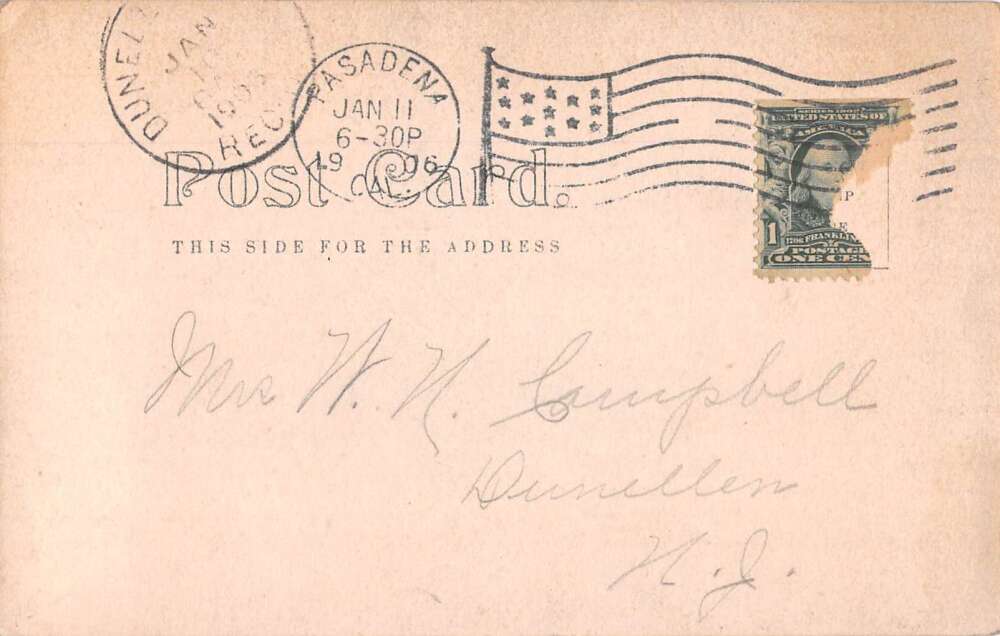 DUNEL
JAN
190
REC
PASADENA
JAN 11
6-30P
1906
CAL.
Post Card.
THIS SIDE FOR THE ADDRESS
SERIES 1902
UNITED STATES OF
AMERICA
1
1706 FRANKLIN
POSTAGE
ONE CEN
Mrs W. H. Campbell
Dunellen
N.J.